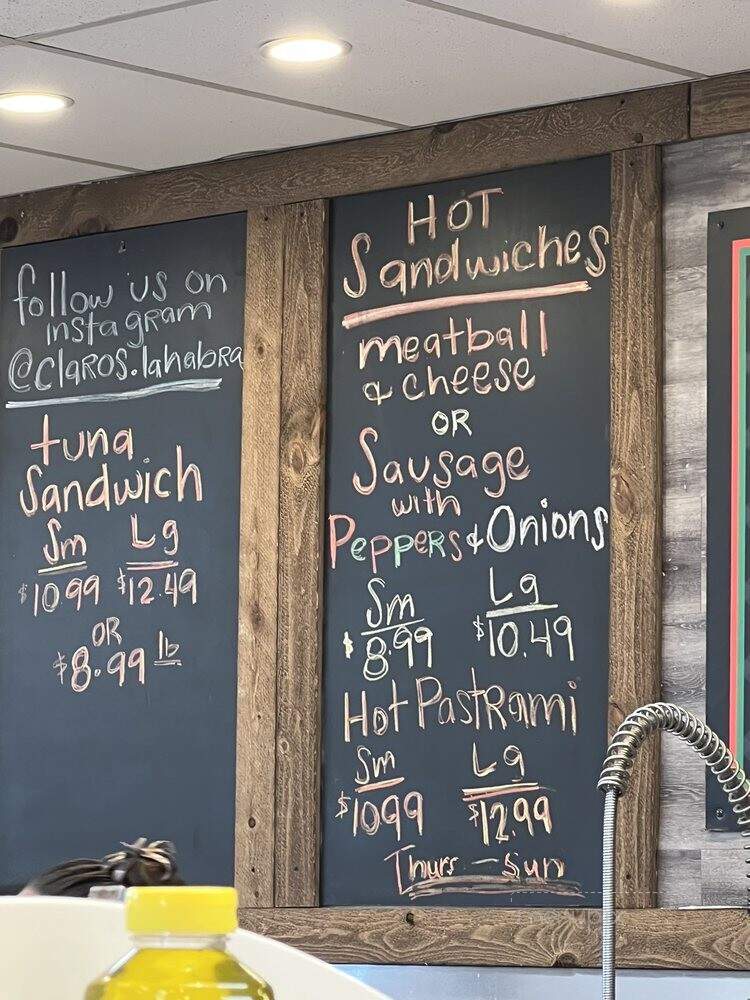 follow us on
instagram
@claros.lahabra
tuna
Sandwich
Sm Lg
$10.99 $12.49
OR
$8.99 lb
HOT
Sandwiches
meatball
& cheese
OR
Sausage
with
Peppers & Onions
Sm Lg
$8.99 $10.49
Hot Pastrami
Sm Lg
$10.99 $12.99
Thurs - Sun